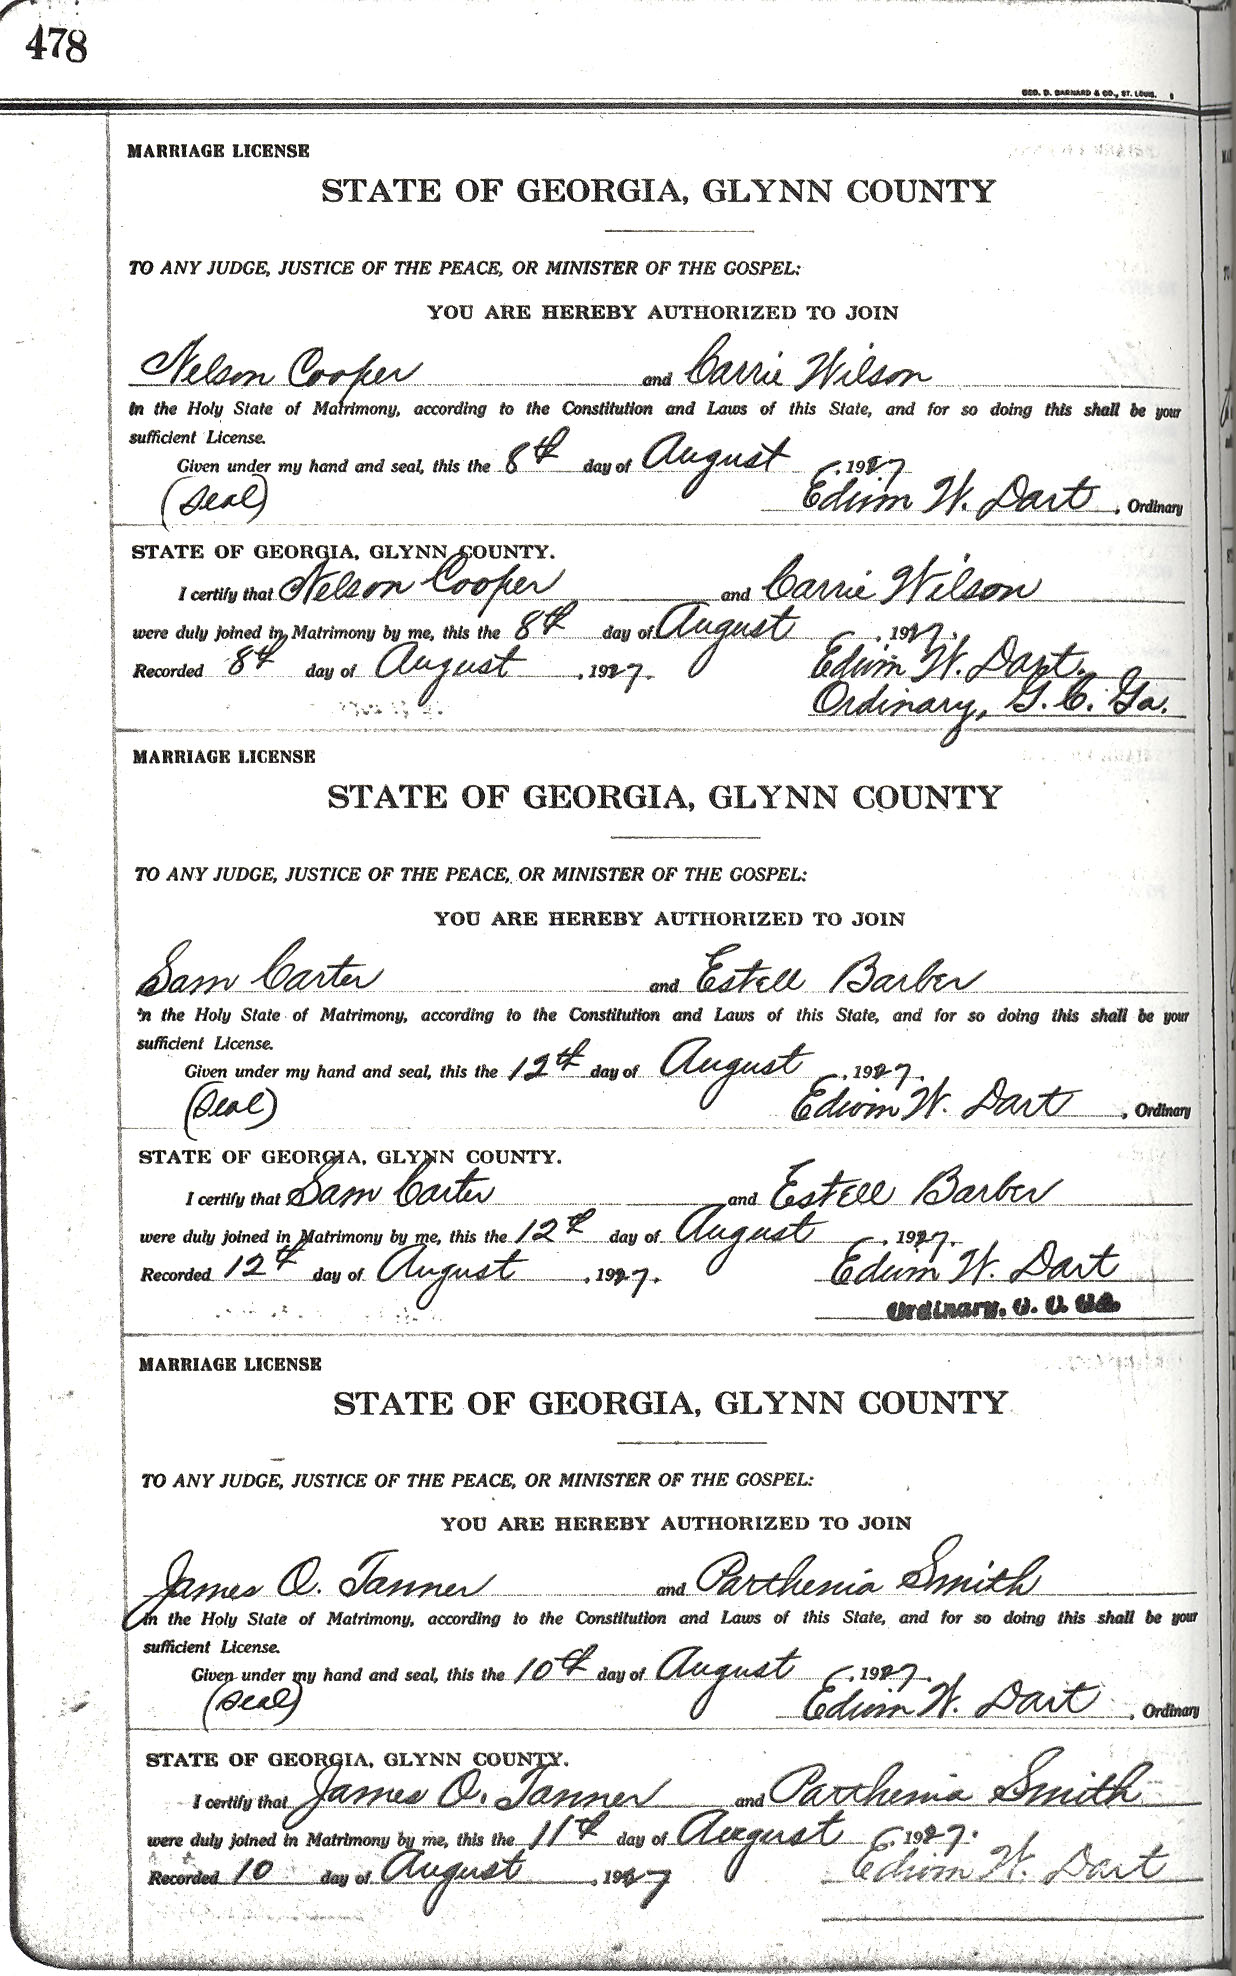 478
GEO. D. BARNARD & CO., ST. LOUIS.
MARRIAGE LICENSE
STATE OF GEORGIA, GLYNN COUNTY
TO ANY JUDGE, JUSTICE OF THE PEACE, OR MINISTER OF THE GOSPEL:
YOU ARE HEREBY AUTHORIZED TO JOIN
Nelson Cooper and Carrie Wilson
in the Holy State of Matrimony, according to the Constitution and Laws of this State, and for so doing this shall be your
sufficient License.
Given under my hand and seal, this the 8th day of August, 1927
(Seal) Edwin W. Dart, Ordinary
STATE OF GEORGIA, GLYNN COUNTY.
I certify that Nelson Cooper and Carrie Wilson
were duly joined in Matrimony by me, this the 8th day of August, 1927.
Recorded 8th day of August, 1927. Edwin W. Dart.
Ordinary, G. C. Ga.
MARRIAGE LICENSE
STATE OF GEORGIA, GLYNN COUNTY
TO ANY JUDGE, JUSTICE OF THE PEACE, OR MINISTER OF THE GOSPEL:
YOU ARE HEREBY AUTHORIZED TO JOIN
Sam Carter and Estell Barber
in the Holy State of Matrimony, according to the Constitution and Laws of this State, and for so doing this shall be your
sufficient License.
Given under my hand and seal, this the 12th day of August, 1927.
(Seal) Edwin W. Dart, Ordinary
STATE OF GEORGIA, GLYNN COUNTY.
I certify that Sam Carter and Estell Barber
were duly joined in Matrimony by me, this the 12th day of August, 1927.
Recorded 12th day of August, 1927. Edwin W. Dart
Ordinary,
MARRIAGE LICENSE
STATE OF GEORGIA, GLYNN COUNTY
TO ANY JUDGE, JUSTICE OF THE PEACE, OR MINISTER OF THE GOSPEL:
YOU ARE HEREBY AUTHORIZED TO JOIN
James O. Tanner and Parthenia Smith
in the Holy State of Matrimony, according to the Constitution and Laws of this State, and for so doing this shall be your
sufficient License.
Given under my hand and seal, this the 10th day of August, 1927.
(Seal) Edwin W. Dart, Ordinary
STATE OF GEORGIA, GLYNN COUNTY.
I certify that James O. Tanner and Parthenia Smith
were duly joined in Matrimony by me, this the 11th day of August, 1927.
Recorded 10 day of August, 1927 Edwin W. Dart